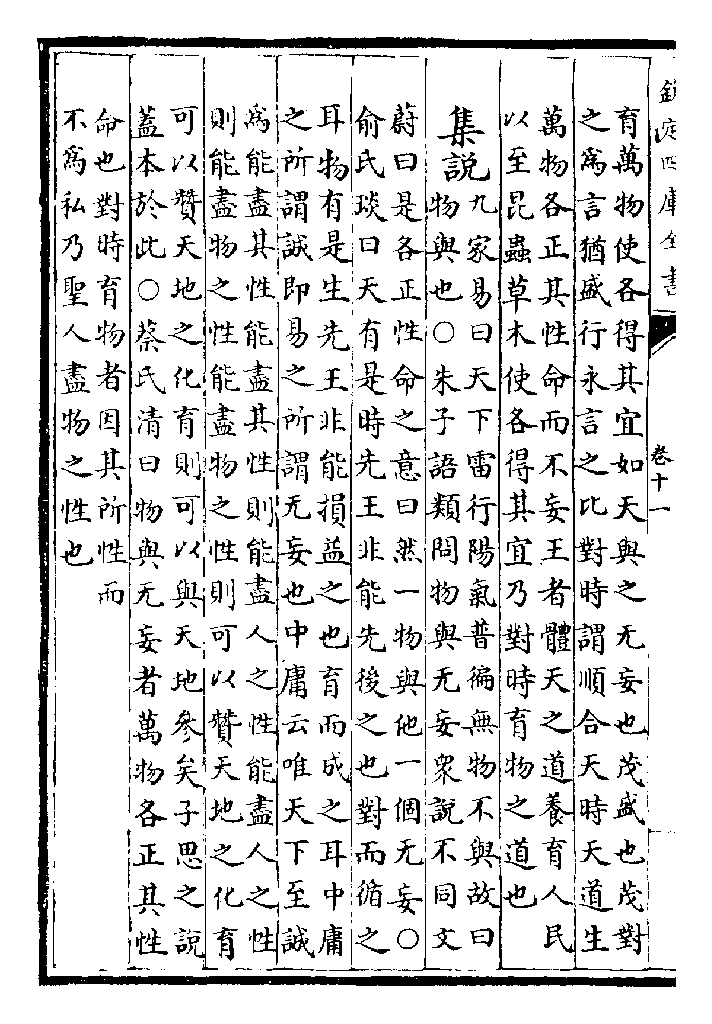 欽定四庫全書 卷十一
育萬物使各得其宜如天與之无妄也茂盛也茂對
之爲言猶盛行永言之比對時謂順合天時天道生
萬物各正其性命而不妄王者體天之道養育人民
以至昆蟲草木使各得其宜乃對時育物之道也
集說 九家易曰天下雷行陽氣普徧無物不與故曰
物與也○朱子語類問物與无妄衆說不同文
蔚曰是各正性命之意曰然一物與他一個无妄○
俞氏琰曰天有是時先王非能先後之也對而循之
耳物有是生先王非能損益之也育而成之耳中庸
之所謂誠即易之所謂无妄也中庸云唯天下至誠
爲能盡其性能盡其性則能盡人之性能盡人之性
則能盡物之性能盡物之性則可以贊天地之化育
可以贊天地之化育則可以與天地參矣子思之說
蓋本於此○蔡氏清曰物與无妄者萬物各正其性
命也對時育物者因其所性而
不爲私乃聖人盡物之性也